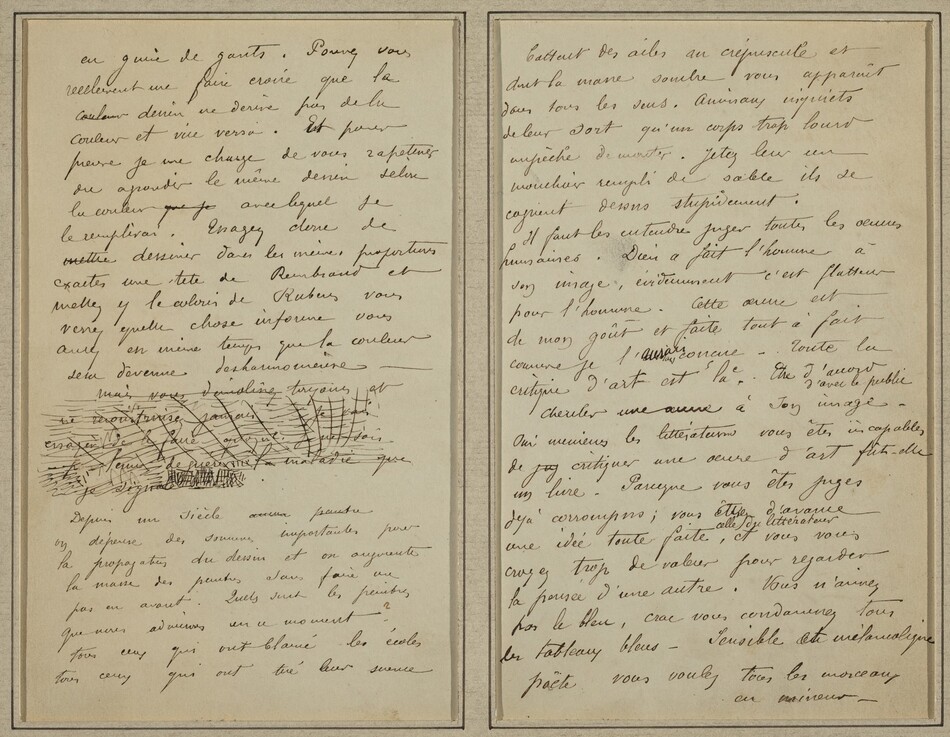 en guise de gants. Pouvez vous
reellement me faire croire que la
couleur dessin ne derive pas de la
couleur et vice versa. Et pour
preuve je me charge de vous rapetisser
ou agrandir le même dessin selon
la couleur que je avec lequel je
le remplirai. Essayez donc de
mettre dessiner dans les mêmes proportions
exactes une tete de Rembrand et
mettez y le coloris de Rubens vous
verrez quelle chose informe vous
aurez en même temps que la couleur
sera devenue desharmonieuse —
mais vous démolissez toujours et
ne reconstruisez jamais je vais
essayer de le faire
la maladie que
je signale
Depuis un siècle aucun peintre
on dépense des sommes importantes pour
la propagation du dessin et on augmente
la masse des peintres sans faire un
pas en avant. Quels sont les peintres
que nous admirons en ce moment?
tous ceux qui ont blamé les écoles
tous ceux qui ont tiré leur science
battant des ailes au crépuscule et
dont la masse sombre vous apparait
dans tous les sens. Animaux inquiets
de leur sort qu'un corps trop lourd
empêche de monter. Jetez leur un
mouchoir rempli de sable ils se
cognent dessus stupidement.
Il faut les entendre juger toutes les œuvres
humaines. Dieu a fait l'homme à
son image, évidemment c'est flatteur
pour l'homme. Cette œuvre est
de mon goût et faite tout à fait
comme je l'aurais conçue — Toute la
critique d'art est là. Etre d'accord
d'avec le public
chercher une œuvre à son image —
Oui messieurs les littérateurs vous êtes incapables
de critiquer une œuvre d'art fût-elle
un livre. Parceque vous êtes juges
déjà corrompus; vous avez d'avance
une idée toute faite, celle du littérateur et vous vous
croyez trop de valeur pour regarder
la pensée d'une autre. Vous n'aimez
pas le bleu, car vous condamnez tous
les tableaux bleus — Sensible et mélancolique
poëte vous voulez tous les morceaux
en mineur —